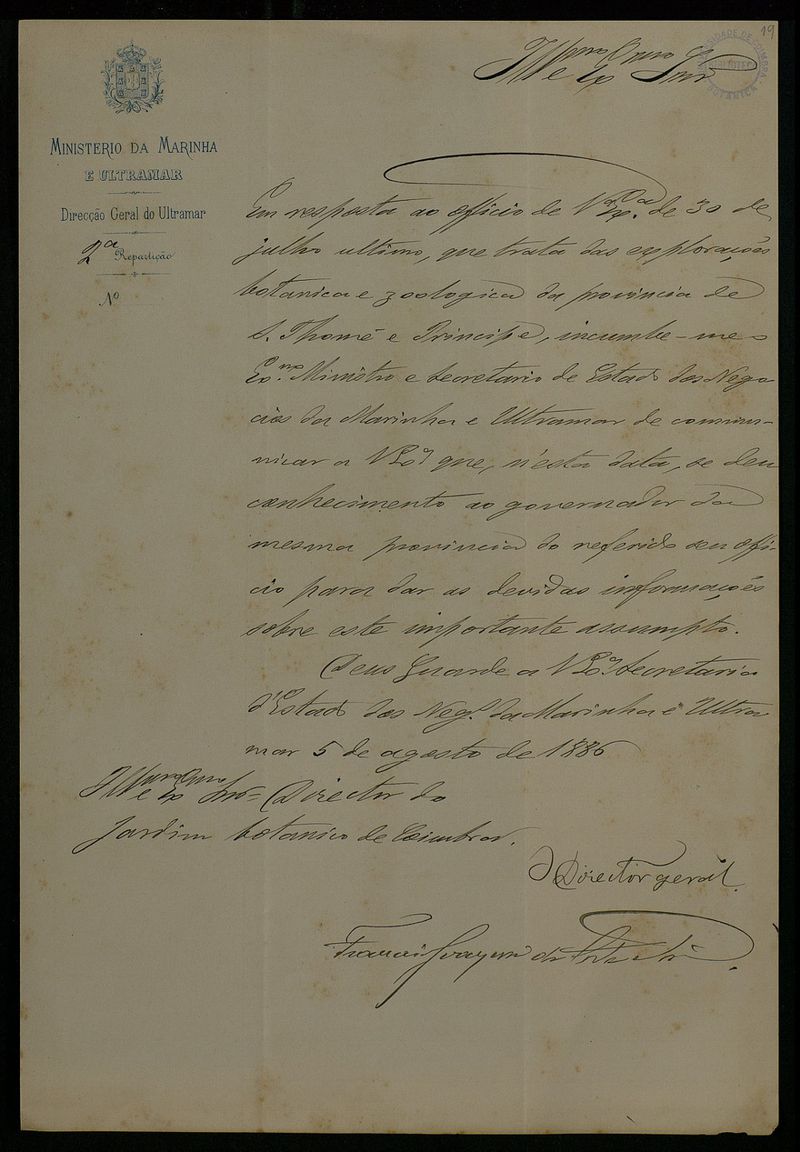 19
UNIVERSIDADE DE COIMBRA
BIBLIOTECA
BOTANICA
Illmo e Exmo Snr
MINISTERIO DA MARINHA
E ULTRAMAR
Direcção Geral do Ultramar
2ª Repartição
Nº
Em resposta ao officio de V. Exª. de 30 de
julho ultimo, que trata das explorações
botanica e zoologica da provincia de
S. Thomé e Principe, incumbe-me o
Exmo. Ministro e Secretario de Estado dos Nego
cios da Marinha e Ultramar de commu-
nicar a V Exª que, n'esta data, se deu
conhecimento ao governador da
mesma provincia do referido seu offi-
cio para dar as devidas informações
sobre este importante assumpto.
Deus Guarde a V Exª. Secretaria
d'Estado dos Negs. da Marinha e Ultra
mar 5 de agosto de 1886
Illmo e Exmo Snr = Director do
Jardim botanico de Coimbra.
O Director geral.
Francisco Joaquim da Costa e Silva.